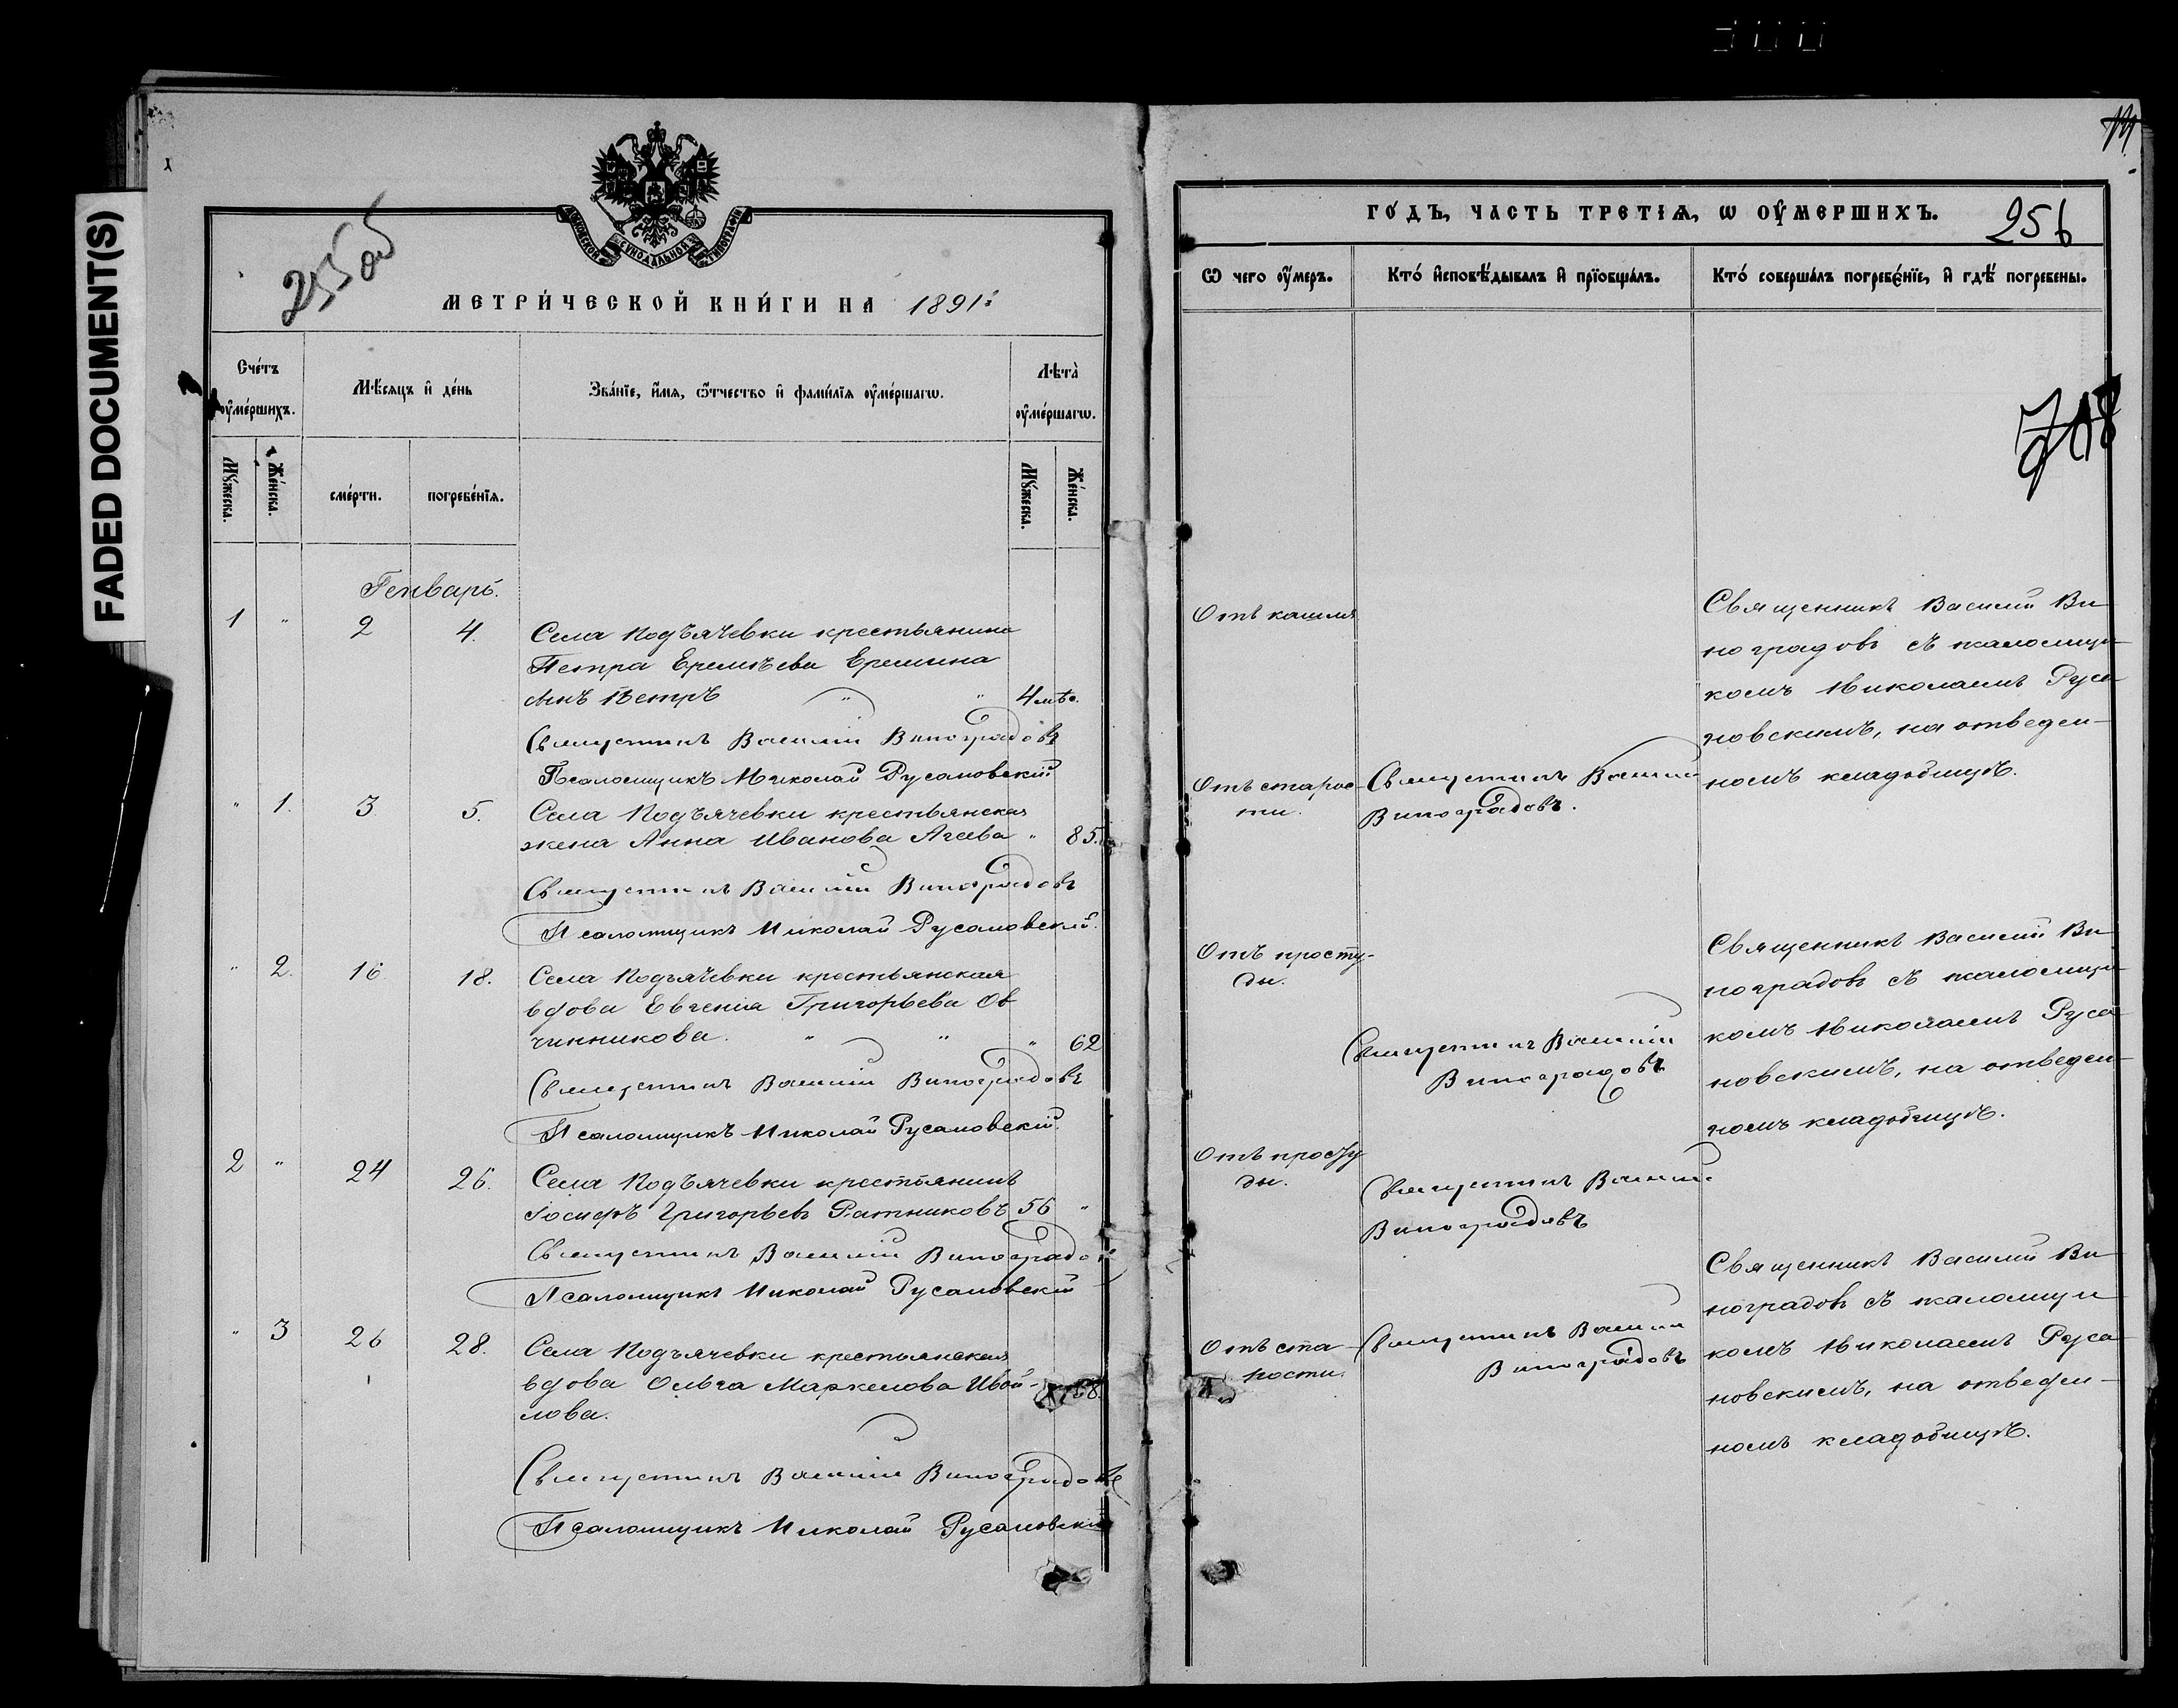 FADED DOCUMENT(S)
255 об
МОСКОВСКОЙ СѴНОДАЛЬНОЙ ТИПОГРАФІИ
МЕТРИ́ЧЕСКОЙ КНИ́ГИ НА 1891й
Сче́тъ
ᲂу҆ме́ршихъ.
Мѣ́сяцъ и҆ де́нь
Зва́нїе, и҆́мя, ѻ҆́тчество и҆ фами́лїя ᲂу҆ме́ршагѡ.
Лѣта̀
ᲂу҆ме́ршагѡ.
Мꙋ́жеска.
Же́нска.
сме́рти.
погребе́нїя.
Мꙋ́жеска.
Же́нска.
Генварь.
1 " 2 4. Села Подъячевки крестьянина
Петра Еремѣева Еремина
сынъ Петръ " " 4 лѣт.
Священникъ Василій Виноградовъ
Псаломщикъ Николай Русановскій
" 1. 3 5. Села Подъячевки крестьянская
жена Анна Иванова Агеева " 85.
Священникъ Василій Виноградовъ
Псаломщикъ Николай Русановскій.
" 2. 16 18. Села Подъячевки крестьянская
вдова Евгенія Григорьева Ов
чинникова. " " " 62
Священникъ Василій Виноградовъ
Псаломщикъ Николай Русановскій.
2 " 24 26. Села Подъячевки крестьянинъ
Іосифъ Григорьевъ Ратниковъ 56 "
Священникъ Василій Виноградов
Псаломщикъ Николай Русановскій
" 3 26 28. Села Подъячевки крестьянская
вдова Ольга Маркелова Ивой-
лова.
Священникъ Василій Виноградовъ
Псаломщикъ Николай Русановскій
ГО́ДЪ, ЧАСТЬ ТРЕТІѦ, Ѡ ОУ҆МЕРШИХЪ. 256
Ѿ чего ᲂу҆́меръ.
Кто́ и҆сповѣ́дывалъ и҆ прїѻбща́лъ.
Кто́ соверша́лъ погребе́нїе, и҆ гдѣ́ погребены.
Отъ кашля
Священникъ Василій Ви
ноградовъ съ псаломщи
комъ Николаемъ Руса
новскимъ, на отведен-
номъ кладбищѣ.
Отъ старос-
ти.
Священникъ Василій
Виноградовъ.
Отъ просту-
ды.
Священникъ Василій
Виноградовъ
Священникъ Василій Ви
ноградовъ съ псаломщи
комъ Николаемъ Руса
новскимъ, на отведен-
номъ кладбищѣ.
Отъ просту
ды.
Священникъ Василій
Виноградовъ
Отъ ста-
рости.
Священникъ Василій
Виноградовъ
Священникъ Василій Ви
ноградовъ съ псаломщи
комъ Николаемъ Руса
новскимъ, на отведен-
номъ кладбищѣ.